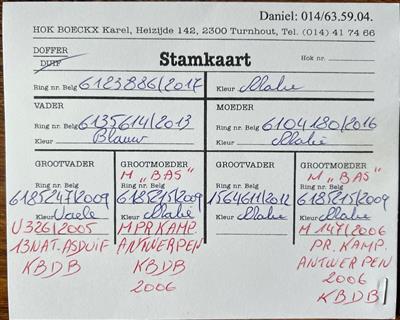 Daniel: 014/63.59.04.
HOK BOECKX Karel, Heizijde 142, 2300 Turnhout, Tel. (014) 41 74 66
DOFFER
DUIF
Stamkaart
Hok nr.
Ring nr. Belg 6123886/2017 Kleur Malie
VADER
Ring nr. Belg 6135614/2013
Blauw
MOEDER
Ring nr. Belg 6104180/2016
Kleur Malie
GROOTVADER
Ring nr. Belg
6185247/2009
Kleur Vaele
U326/2005
13NAT.ASDUIF
KBDB
GROOTMOEDER
M „BAS”
Ring nr. Belg
6185215/2009
Kleur Malie
MPRKAMP
ANTWERPEN
KBDB
2006
GROOTVADER
Ring nr. Belg
1564611/2012
Kleur Malie
GROOTMOEDER
M „BAS”
Ring nr. Belg
6185215/2009
Kleur Malie
M 147/2006
PR. KAMP.
ANTWERPEN
2006
KBDB